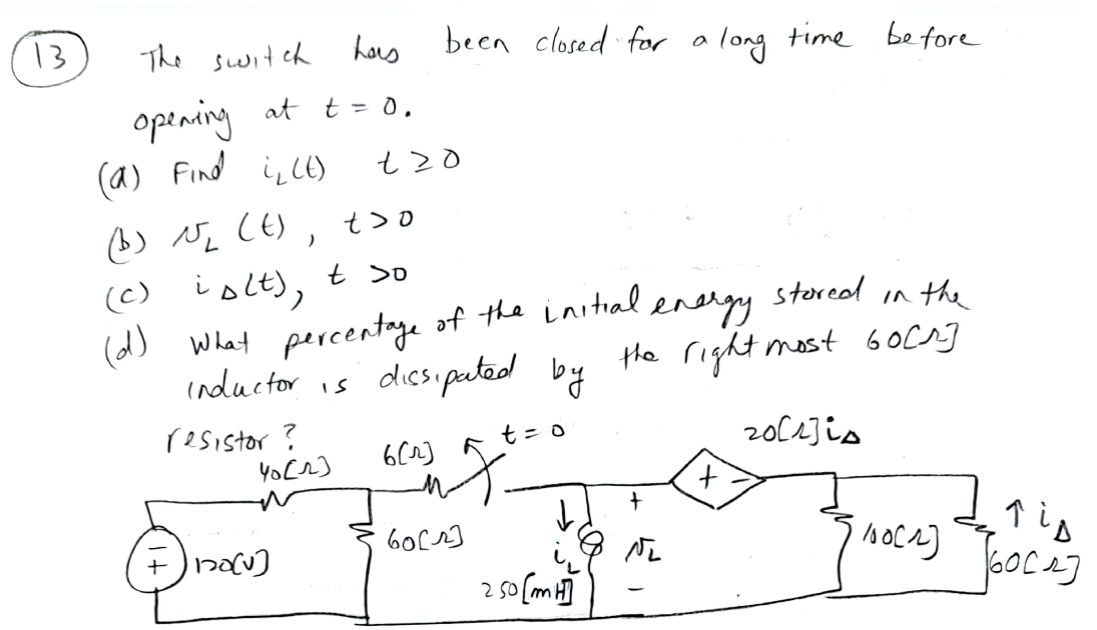 13 The switch has been closed for a long time before
opening at t = 0.
(a) Find i_L(t) t ≥ 0
(b) v_L(t), t > 0
(c) i_Δ(t), t > 0
(d) What percentage of the initial energy stored in the
inductor is dissipated by the rightmost 60[Ω]
resistor?
40[Ω] 6[Ω] t = 0 20[Ω]i_Δ
+ -
- + 120[V] 60[Ω] ↓ i_L + v_L - ↑ i_Δ
250[mH] 60[Ω]